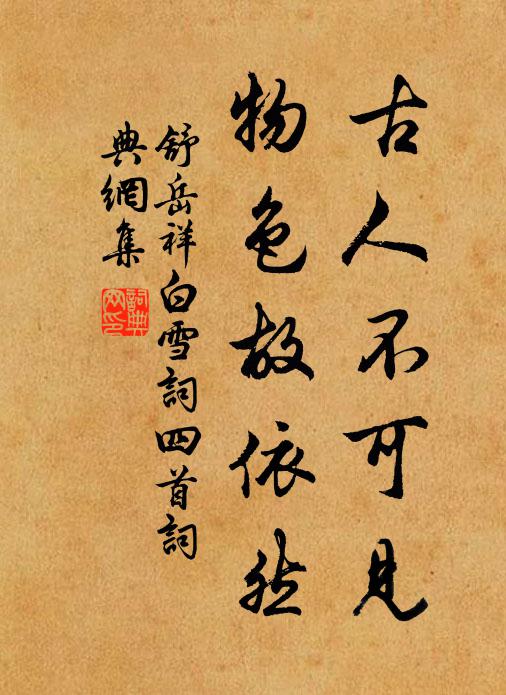 古人不可見
物色故依然
舒岳祥白雪詞四首詞
典網集
詞典網印